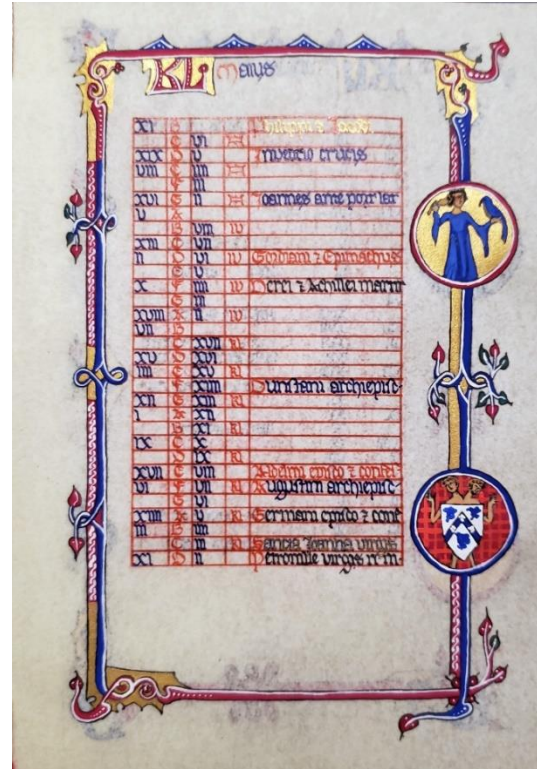 KL Maius
XI B Philippi z Jacobi
C VI N
XIX D V Inventio crucis
VIII E IIII N
F III
XVI G II N Joannes ante port lat
V A
B VIII IV
XIII C VII
II D VI IV Gordiani z Epimachus
E V
X F IIII Nerei z Achillei martir
G III
XVIII A II IV
VII B
C XVII KL
XV D XVI
IIII E XV KL
F XIIII Dunstani archiepisc-
XII G XIII KL
I A XII
B XI KL
IX C X
D IX KL
XVII E VIII Aldelmi episco z confes
VI F VII KL Augustini archiepisc-
G VI
XIIII A V KL Germani episco z conf
III B IIII
C III KL Sancta Joanna virgis
XI D II Petronille virgis